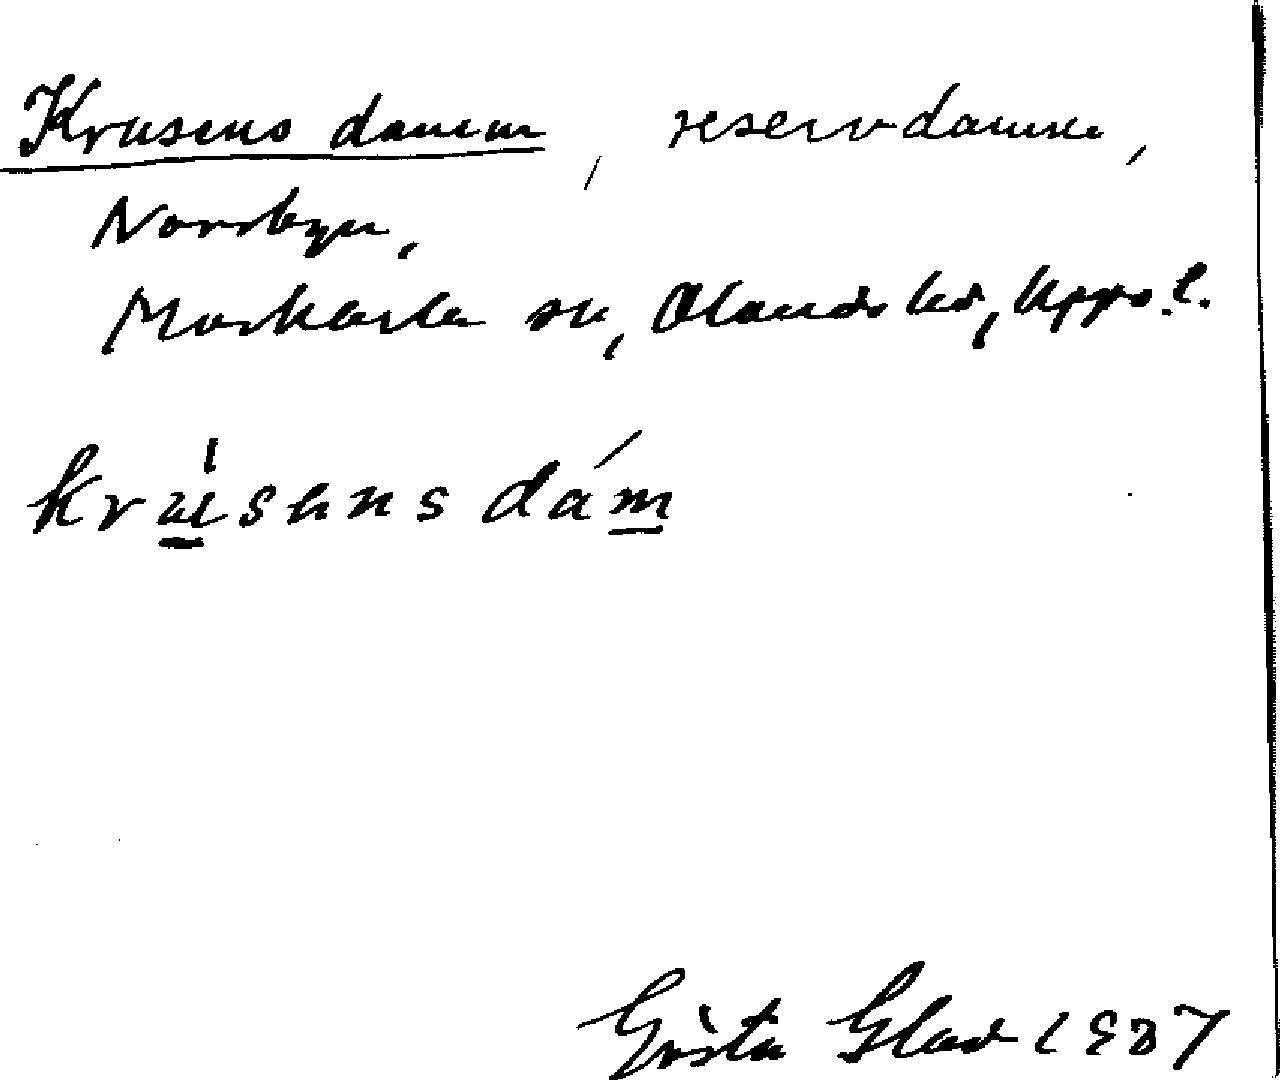 Krusens dammen, reservdamm,
Norrbyn,
Morkarla sn, Olands hd, Upps. l.
krusens dám
Gösta Glad 1937